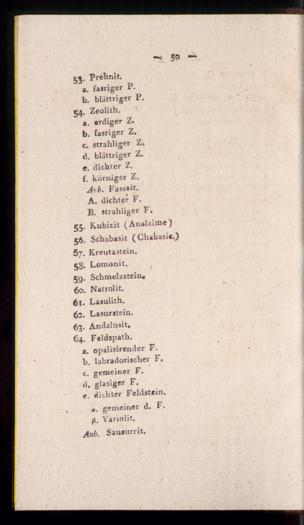 — 50 —
53. Prehnit.
a. fasriger P.
b. blättriger P.
54. Zeolith.
a. erdiger Z.
b. fasriger Z.
c. strahliger Z.
d. blättriger Z.
e. dichter Z.
f. körniger Z.
Anh. Fassait.
A. dichter F.
B. strahliger F.
55. Kubizit (Analzime)
56. Schabasit (Chabasie.)
67. Kreutzstein.
58. Lomonit.
59. Schmelzstein.
60. Natrolit.
61. Lasulith.
62. Lasurstein.
63. Andalusit.
64. Feldspath.
a. opalisirender F.
b. labradorischer F.
c. gemeiner F.
d. glasiger F.
e. dichter Feldstein.
α. gemeiner d. F.
β. Variolit.
Anh. Sausurrit.